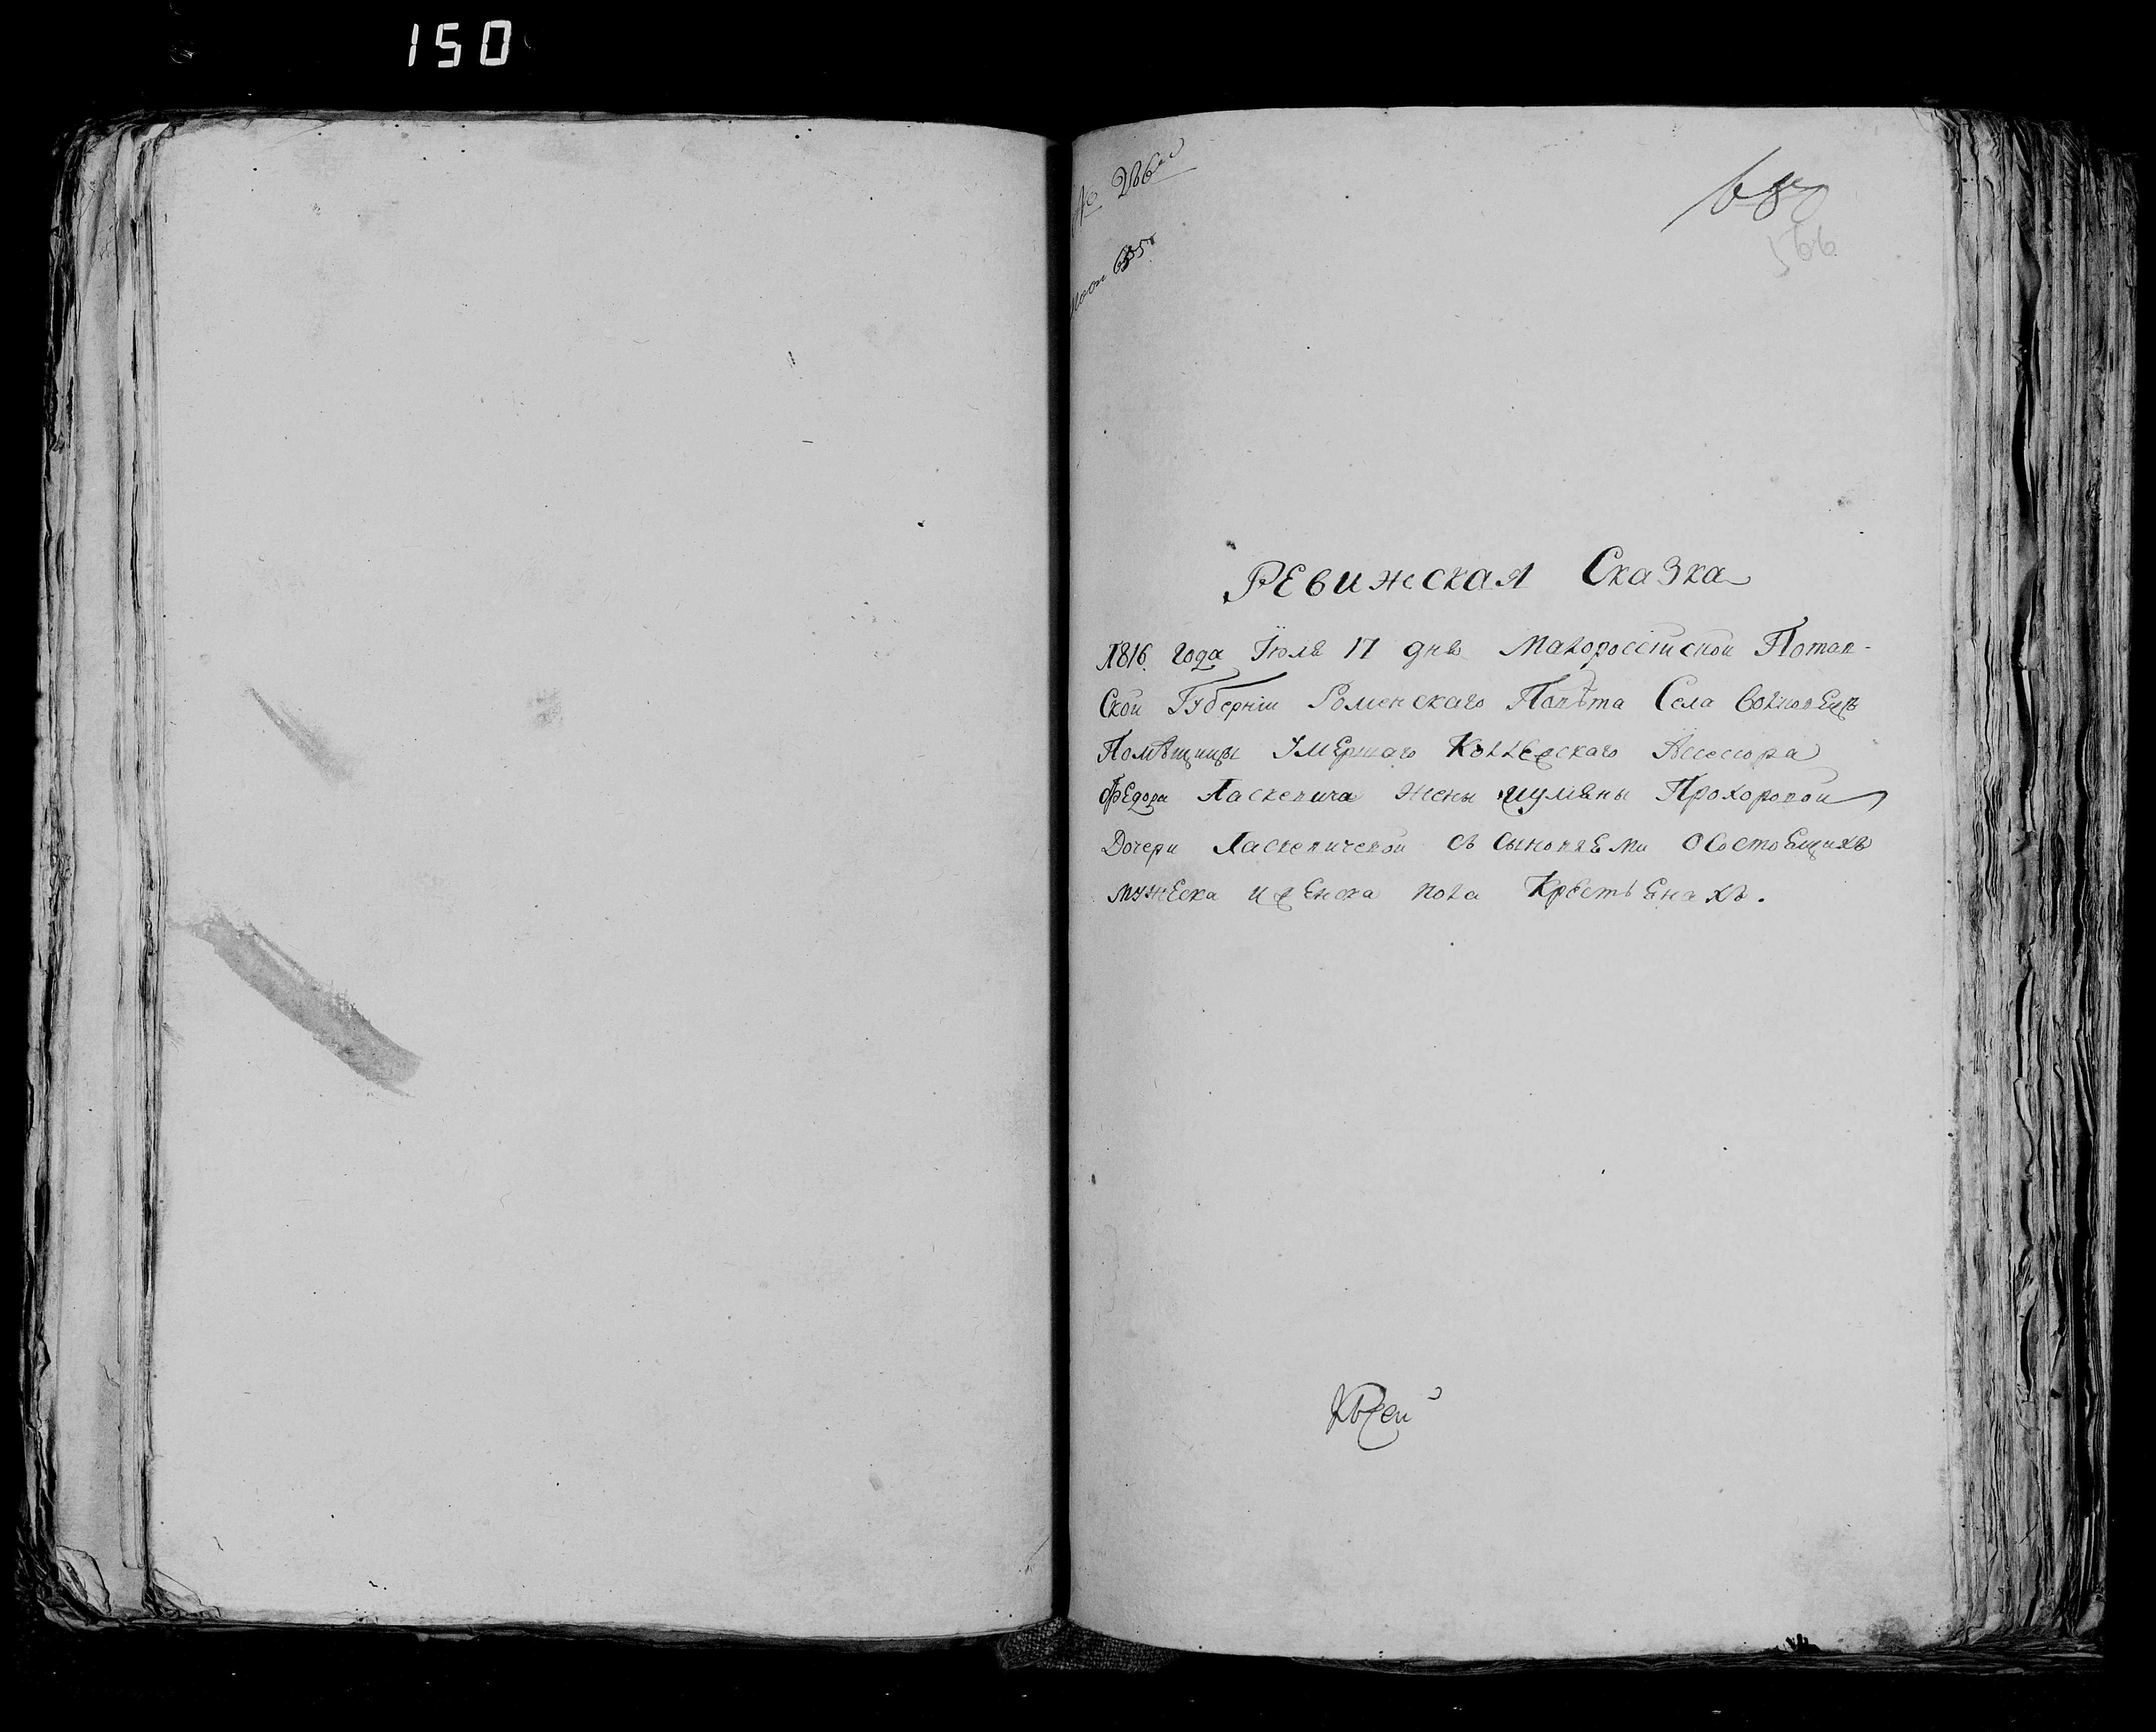 150
№ 266
680
566
Ревижская Сказка
1816. года Июля 17 дня Малороссійской Полтав-
ской Губерніи Роменскаго Повѣта Села
Помѣщицы Умершаго Коллежскаго Ассесора
Федора Паскевича жены Прохоровой
Дочери Паскевичевой съ сыновями Осостоещихъ
мужеска и женска пола Крестьенахъ.